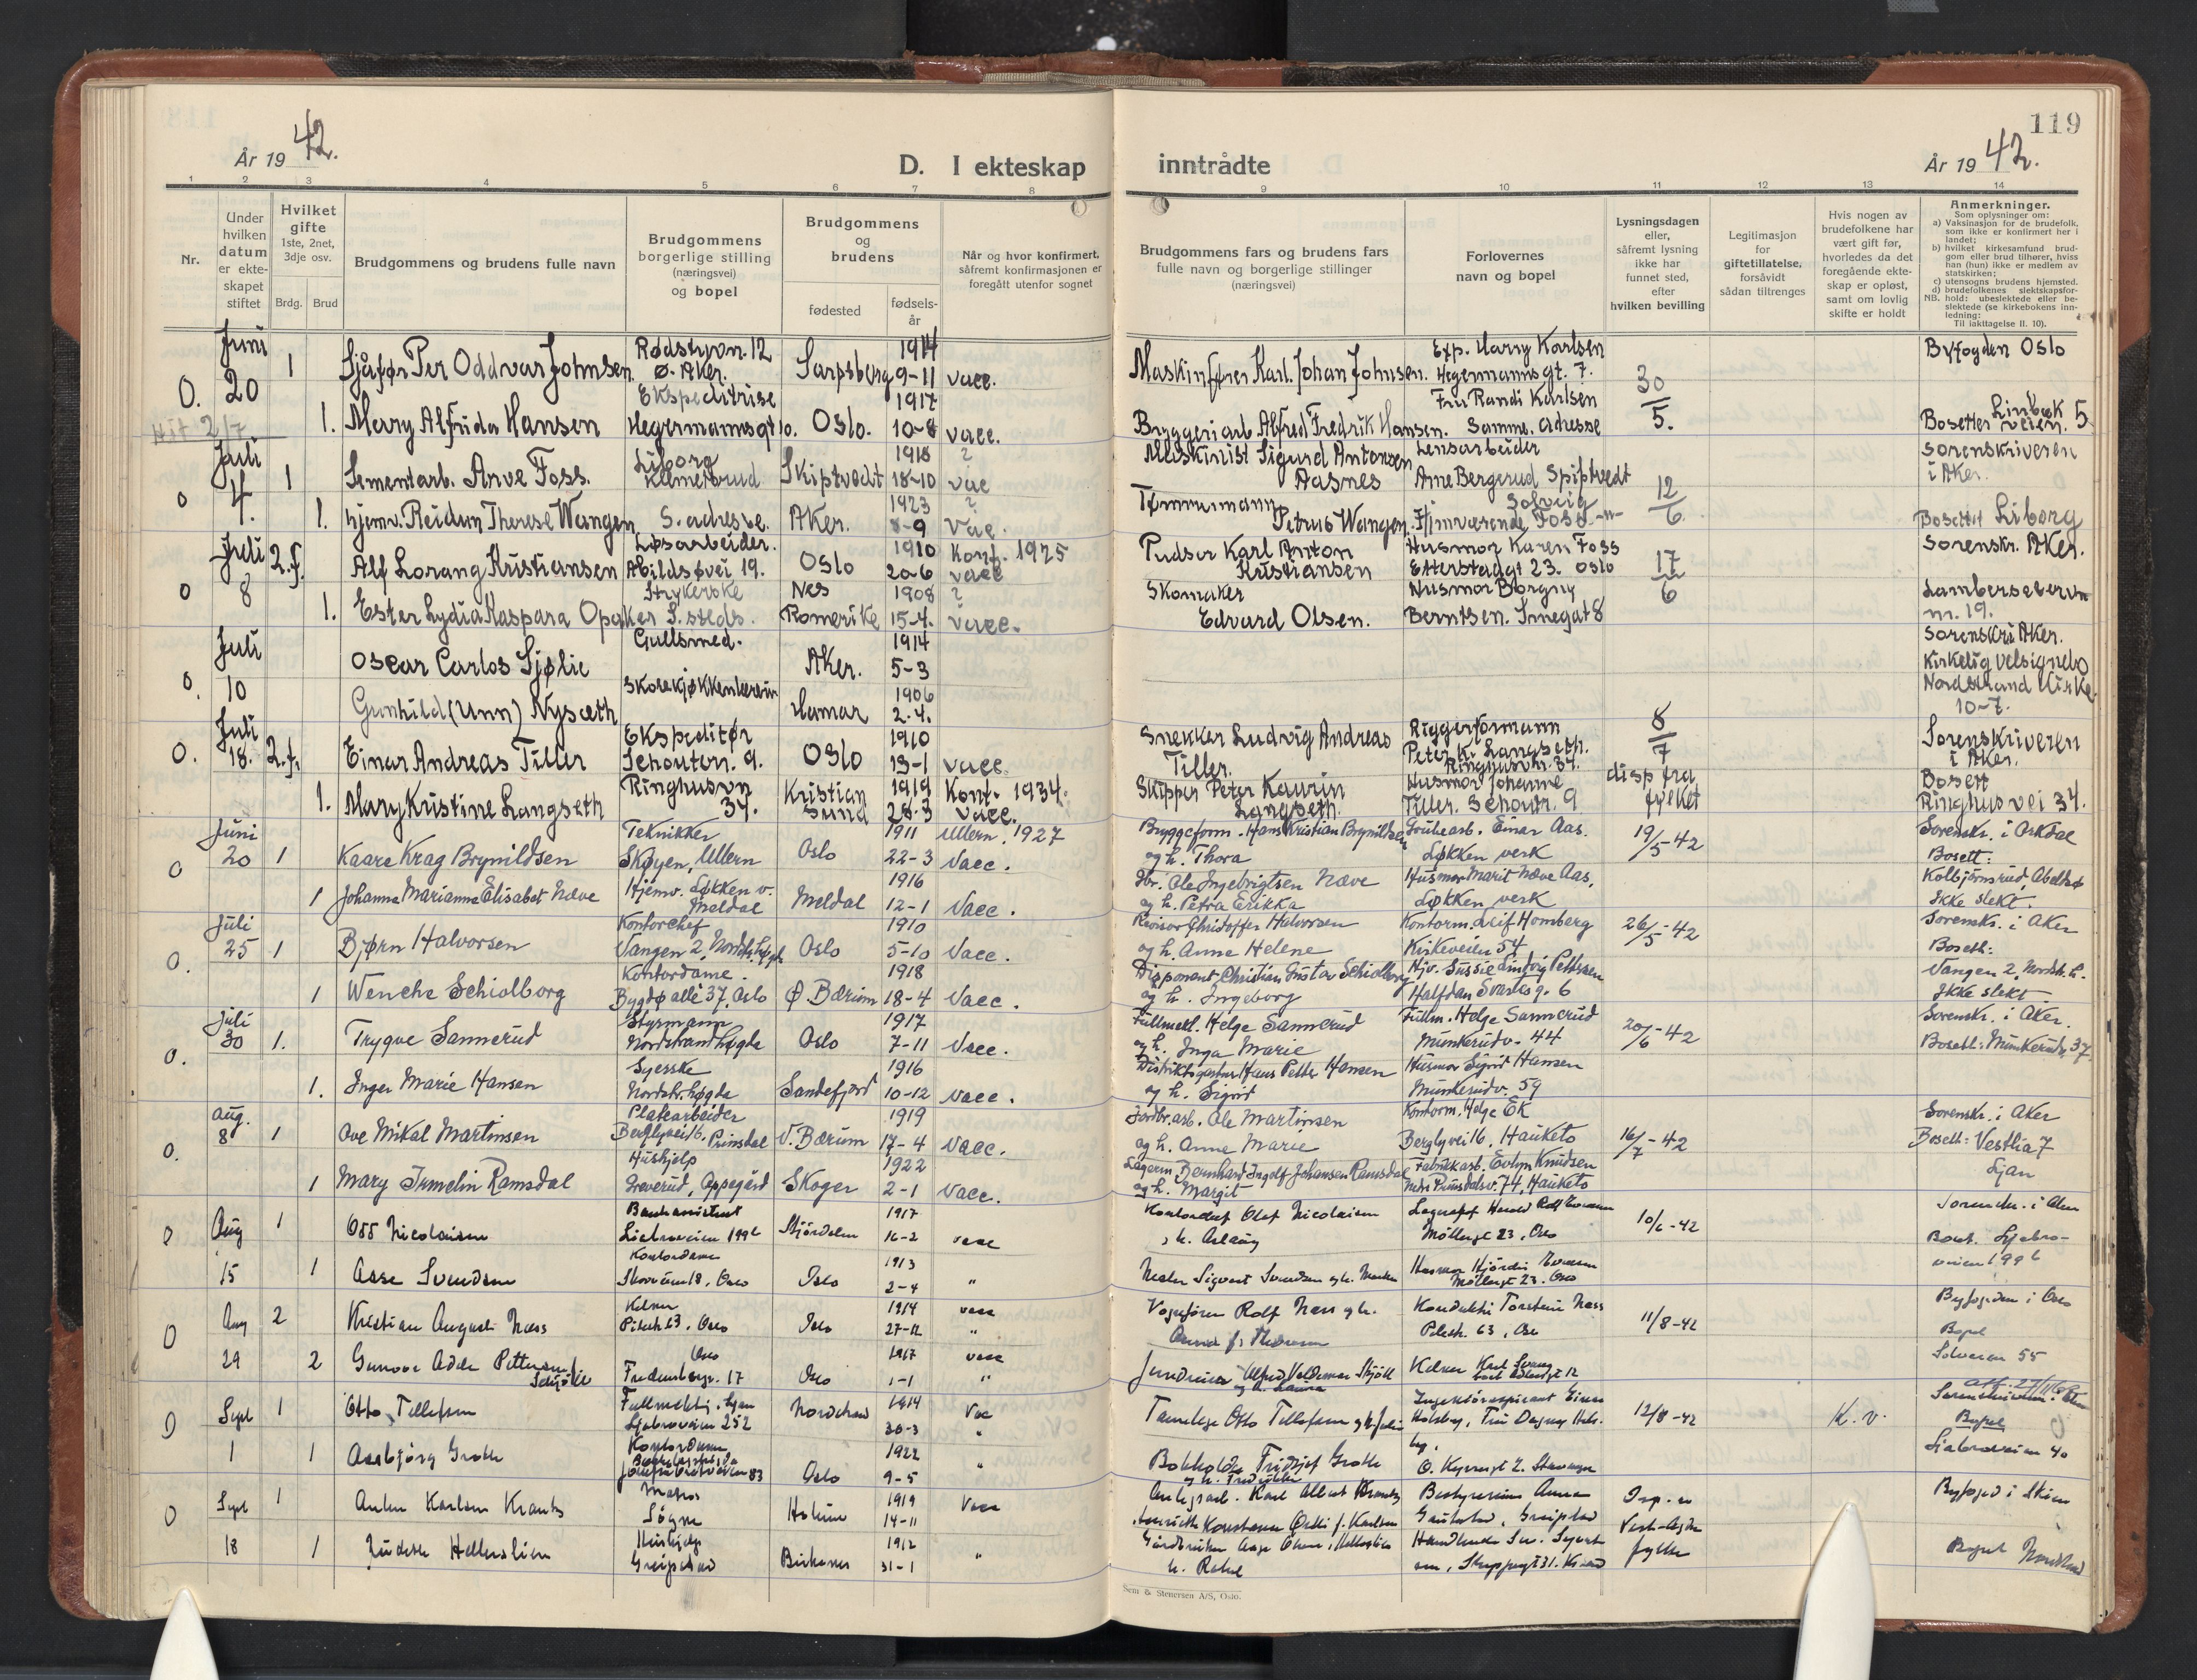 119
År 19 42.
D. I ekteskap inntrådte
År 19 42.
1 2 3 4 5 6 7 8 9 10 11 12 13 14
Nr.
Under hvilken datum er ekteskapet stiftet
Hvilket gifte 1ste, 2net, 3dje osv.
Brdg. Brud
Brudgommens og brudens fulle navn
Brudgommens borgerlige stilling (næringsvei) og bopel
Brudgommens og brudens
fødested
fødselsår
Når og hvor konfirmert, såfremt konfirmasjonen er foregått utenfor sognet
Brudgommens fars og brudens fars fulle navn og borgerlige stillinger (næringsvei)
Forlovernes navn og bopel
Lysningsdagen eller, såfremt lysning ikke har funnet sted, efter hvilken bevilling
Legitimasjon for giftetillatelse, forsåvidt sådan tiltrenges
Hvis nogen av brudefolkene har vært gift før, hvorledes da det foregående ekteskap er opløst, samt om lovlig skifte er holdt
Anmerkninger.
Som oplysninger om:
a) Vaksinasjon for de brudefolk, som ikke er konfirmert her i landet;
b) hvilket kirkesamfund brudgom eller brud tilhører, hviss han (hun) ikke er medlem av statskirken;
c) utensogns brudens hjemsted.
d) brudefolkenes slektskapsforhold: ubeslektede eller beslektede (se kirkebokens innledning:
NB.
Til iakttagelse II. 10).
Juni Rødstuvn. 12 1914 Exp. Harry Karlsen Byfogden Oslo
O. 20 1 Sjåfør Per Oddvar Johnsen. Ø. Aker. Sarpsborg 9-11 vacc. Maskinfører Karl Johan Johnsen. Hegermannsgt. 7. 30
Ekspeditrise 1917 Fru Randi Karlsen
1. Mary Alfrida Hansen Hegermannsgt 10. Oslo. 10-8 vacc. Byggeriarb Alfred Fredrik Hansen. Samme adresse 5. Bosetter
2/7
Juli Liborg 1918 ? Maskinist Sigurd Antonsen Lensarbeider Sorenskriveren
O 4. 1 Sementarb. Arve Foss. Klemetsrud Skiptvedt 18-10 vac Aasnes Arne Bergerud Spiptvedt 12 i Aker.
1923 ? Tømmermann Solveig
1. hjemv. Reidun Therese Wangen S. adresse. Aker. 8-9 vac. Petrus Wangen. Hjemværende Foss -"- 6 Bosettet Liborg
Juli 2.f. Løsarbeider. 1910 Konf. 1925 Pudser Karl Anton Husmor Karen Foss Sorenskr. Aker.
O 8 Alf Lorang Kristiansen Abildsøvei 19. Oslo 20-6 vacc Kristiansen Etterstadgt 23. Oslo 17
Strykerske Nes 1908 ? Skomaker Husmor Borgny 6 Lambersetervn
1. Ester Lydia Kaspara Opaker S. steds. Romerike 15-4. vacc. Edvard Olsen. Berntsen. Smegat 8 nr. 19.
Juli Gullsmed. 1914 Sorenskri Aker.
Oscar Carlos Sjølie Aker. 5-3 Kirkelig velsignelse
O. 10 1906 Nordstrand Kirke.
Gunhild (Unn) Nysæth Hamar 2-4. 10-7.
Juli Ekspeditør 1910 Snekker Ludvig Andreas Riggerformann 8 Sorenskriveren
O. 18. 2.f. Einar Andreas Tiller Schoutern. 9. Oslo 13-1 vacc. Tiller. Peter K. Langseth. Ringhusvn. 34. 7 i Aker.
Ringhusvn 1919 Konf. 1934. Skipper Peter Kaurin Husmor Johanne disp fra Bosett
1. Mary Kristine Langseth 34. Kristiansund 28-3 vacc. Langseth. Tiller. Schoutn. 9 fylket Ringhusvei 34.
Juni Teknikker 1911 Ullern. 1927 Bryggeform. Hans Kristian Brynildsen Grubearb. Einar Aas. 19/5-42 Sorenskr. i Orkdal
O 20 1 Kaare Krag Brynildsen Skøyen, Ullern Oslo 22-3 Vacc. og h. Thora Løkken verk Bosett:
Hjemv. Løkken v. 1916 Gbr. Ole Ingebrigtsen Næve Husmor Marit Næve Aas, Kolbjørnsrud, Abeldsø
1 Johanna Marianna Elisabet Næve Meldal Meldal 12-1 Vacc. og h. Petra Erikka Løkken verk Ikke slekt.
Juli Kontorchef 1910 Revisor Christoffer Halvorsen Kontorm. Leif Homberg 26/5-42 Sorenskr. i Aker
O. 25 1 Bjørn Halvorsen Vangen 2, Nordstr. høgd. Oslo 5-10 Vacc. og h. Anne Helene Kirkeveien 54 Bosett:
Kontordame. 1918 Disponent Christian Gustav Schiolborg Hjv. Sussie Lindvig Pettersen Vangen 2, Nordstr. h.
1 Wenche Schiolborg Bygdø allé 37, Oslo Ø. Bærum 18-4 Vacc. og h. Ingeborg Halfdan Svartes g. 6 Ikke slekt
Juli Styrmann 1917 Fullmekt. Helge Sannerud Fullm. Helge Sannerud 20/6-42 Sorenskr. i Aker.
O. 30 1. Trygve Sannerud Nordstrandhøgda Oslo 7-11 Vacc. og h. Inga Marie Munkerudv. 44 Bosett: Munkerudv. 37
Syerske 1916 Hans Petter Hansen Husmor Sigrid Hansen
1. Inger Marie Hansen Nordstr. høgda Sandefjord 10-12 Vacc. og h. Sigrid Munkerudv. 59
Aug. Platearbeider 1919 Jordbr. arb. Ole Martinsen Kontorm. Helge Ek Sorenskr. i Aker
O. 8 1 Ove Mikal Martinsen Berglyvei 16. Prinsdal V. Bærum 17-4 Vacc. og h. Anne Marie Berglyvei 16, Hauketo 16/7-42 Bosett: Vestlia 7
Hushjelp 1922 Lagerm. Bernhard Ingolf Johansen Ramsdal Fabrikkarb. Evlyn Knudsen Ljan
1 Mary Irmelin Ramsdal Greverud, Oppegård Skoger 2-1 Vacc. og h. Margit Nedre Prinsdalsv. 74, Hauketo
1917 Olaf Nicolaisen 10/6-42
O Aug 1 Nicolaisen Stjördalen 16-2 vacc h. Aslaug Møllergt 23, Oslo
Kontordame 1913 Husmor Hjördis
15 1 Aase Svendsen Oslo 2-4 " Sigvart Svendsen og h. Møllergt 23. Oslo
Kelner 1914 vacc Vognfører Rolf Næss og h. Konduktør Torstein Næss 11/8-42 Byfogden i Oslo
O Aug 2 Kristian August Næss Pilestr. 63, Oslo Oslo 27-12 " Pilestr. 63, Oslo Bopel
Oslo 1917 vacc Solveien 55
29 2 Gunvor Adele Pettersen f. Fredensborgv. 17 Oslo 1-1 " Alfred Valdemar Kelner
O Sept 1 Otto Tellefsen Fullmektig. Ljan 1914 Vac Tannlege Otto Tellefsen 12/8-42 K. v.
Ljabroveien 252 30-3 " Bopel
1 1 Aasbjørg Grotle Kontordame 1922 " Bokholder Fridtjof Grotle Ljabroveien 40
Oslo 9-5
O Sept 1 Anker Karlsen Krantz Matros 1919 Vacc Karl Albert Krantz Bestyrerinne Anna Byfogd i Skien
Søgne Holum 14-11 Greipstad Vest-Agder
18 1 Hushjelp 1912 fylke
Greipstad Birkenes 31-1 " h. Rakel Bopel Nordstrand
Sem & Stenersen A/S, Oslo.